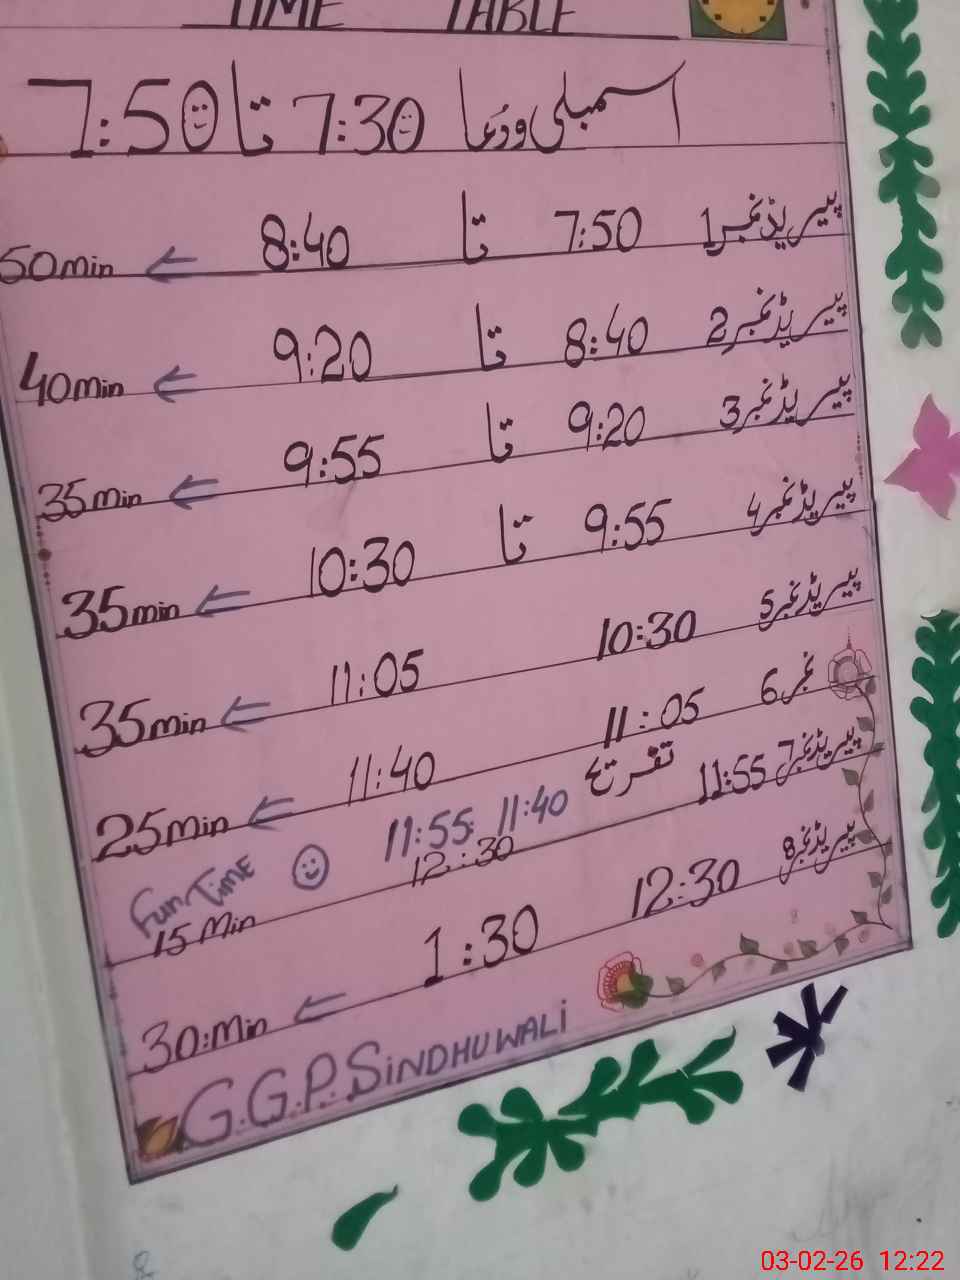 TIME TABLE
اسمبلی و دُعا 7:30 تا 7:50
پیریڈ نمبر 1 7:50 تا 8:40 ← 50 min
پیریڈ نمبر 2 8:40 تا 9:20 ← 40 min
پیریڈ نمبر 3 9:20 تا 9:55 ← 35 min
پیریڈ نمبر 4 9:55 تا 10:30 ← 35 min
پیریڈ نمبر 5 10:30 11:05 ← 35 min
نمبر 6 11:05 11:40 ← 25 min
تفریح 11:40 11:55 Fun Time
پیریڈ نمبر 7 11:55 12:30 15 Min
پیریڈ نمبر 8 12:30 1:30 ← 30:Min
G.G.P.S SINDHUWALI
03-02-26 12:22